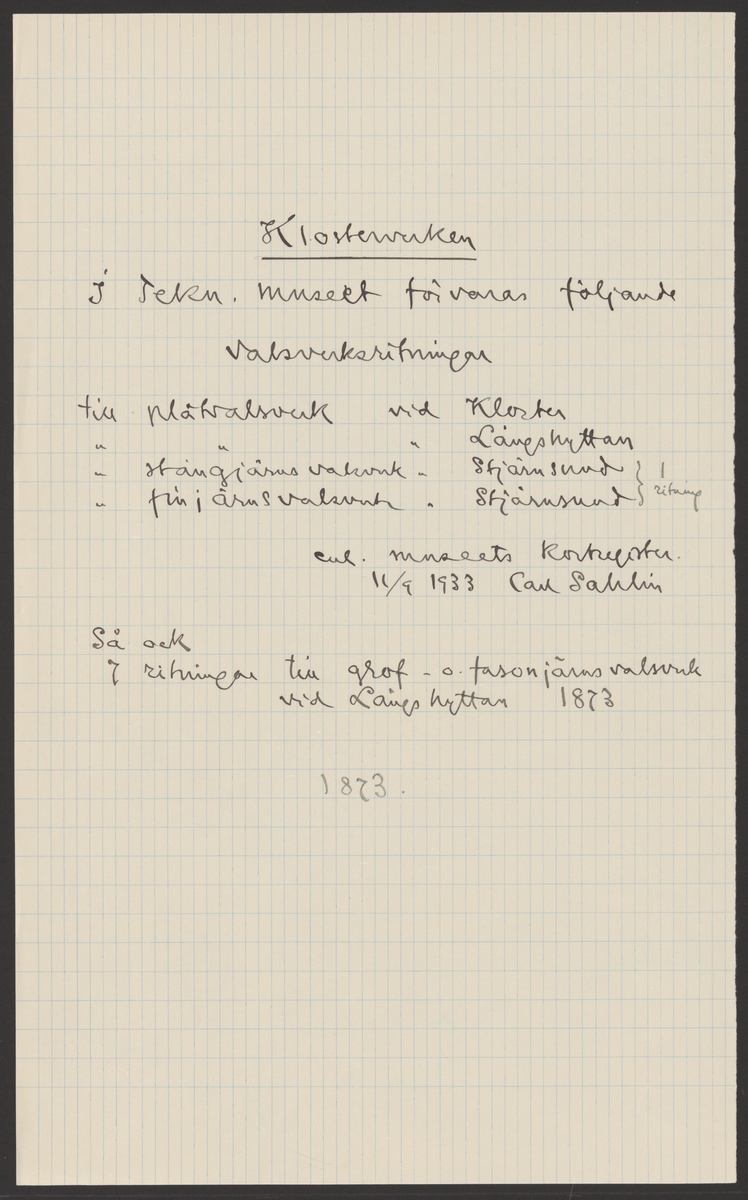 Klosterverken
I Tekn. museet förvaras följande
valsverksritningar
till plåtvalsverk vid Kloster
" " " Långshyttan
" stångjärnsvalsverk " Stjärnsund } 1
" finjärnsvalsverk " Stjärnsund } ritning
enl. museets kortregister.
11/9 1933 Carl Sahlin
Så ock
7 ritningar till grof- o. fasonjärnsvalsverk
vid Långshyttan 1873
1873.